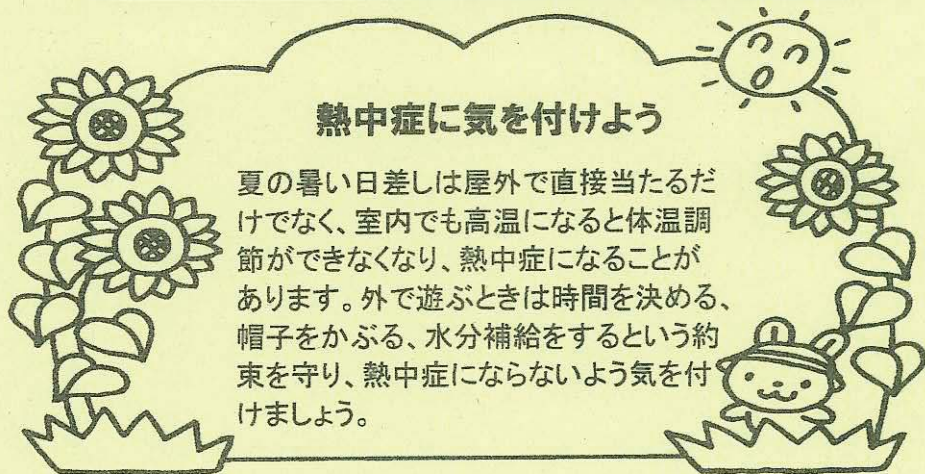 熱中症に気を付けよう
夏の暑い日差しは屋外で直接当たるだ
けでなく、室内でも高温になると体温調
節ができなくなり、熱中症になることが
あります。外で遊ぶときは時間を決める、
帽子をかぶる、水分補給をするという約
束を守り、熱中症にならないよう気を付
けましょう。